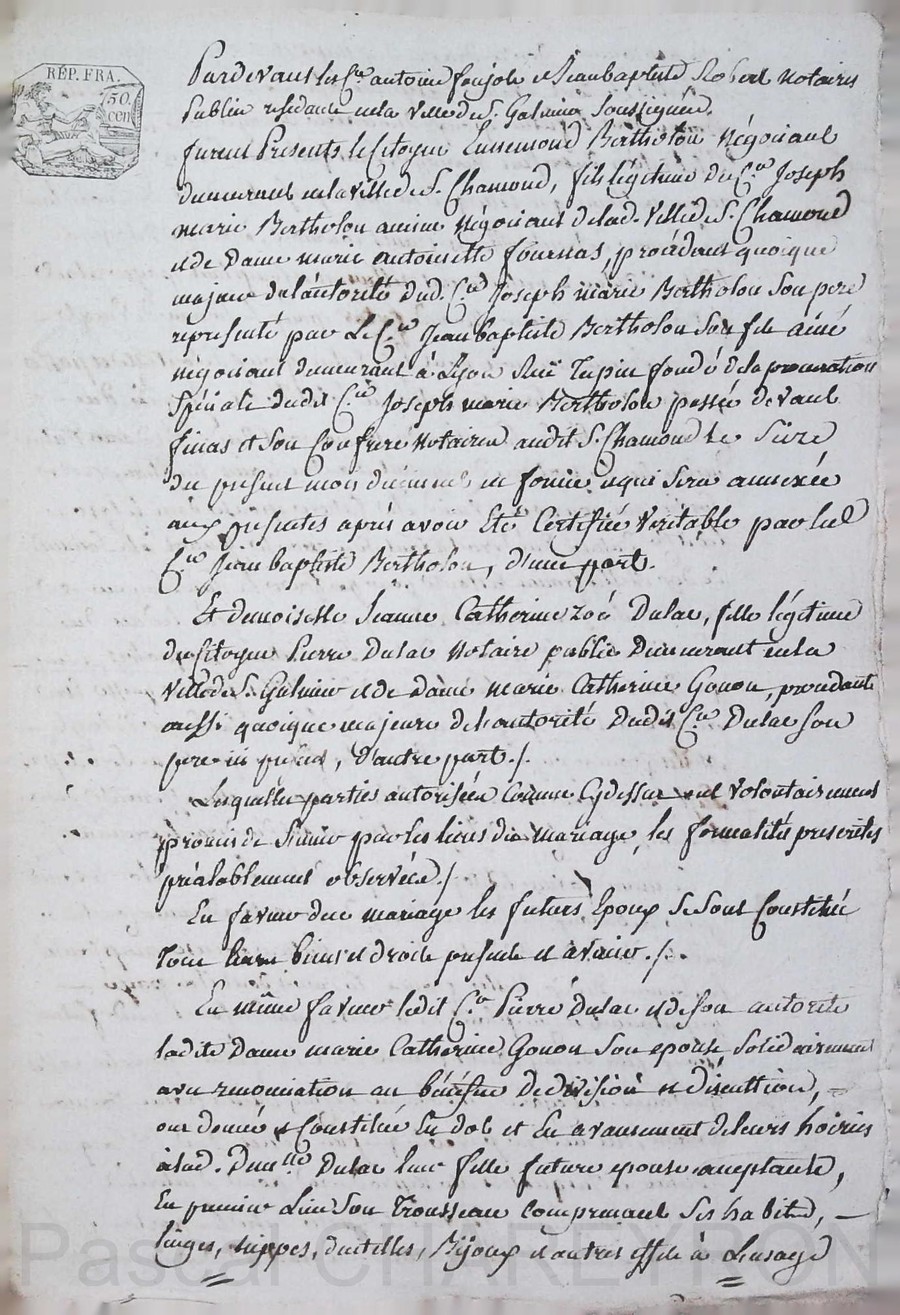 REP. FRA.
50.
cen
Pardevant les C.en antoine foujols et Jean baptiste Robert Notaires
Publics residants en la Ville de S. Galmier Soussignés.
furent Presents le Citoyen Ennemond Bertholon Négociant
demeurant en la Ville de S. Chamond, fils légitime du C.en Joseph
marie Bertholon ancien Négociant de lad. Ville de S. Chamond
et de Dame marie antoinette fournas, procédant quoique
majeur de l'autorité dud. C.en Joseph marie Bertholon Son pere
représenté par Le C.en Jean baptiste Bertholon Son fils ainé
négociant demeurant à Lyon Rue Tupin fondé de la procuration
Spéciale dudit C.en Joseph marie Bertholon passée devant
finas et Son Confrere Notaires audit S. Chamond le Seize
du présent mois en forme et qui Sera annexée
aux présentes après avoir Eté Certifiée Veritable par led
C.en Jean baptiste Bertholon, d'une part.
Et demoiselle Jeanne Catherine Zoé Dulac, fille légitime
du Citoyen Pierre Dulac Notaire public Demeurant en la
Ville de S. Galmier et de Dame marie Catherine Gonon, procédante
aussi quoique majeure de l'autorité Dudit C.en Dulac Son
pere ici présent, d'autre part./.
Lesquelles parties autorisées Comme Cydessus ont Volontairement
promis de S'unir par les liens du mariage, les formalités prescrites
préalablement observées./.
En faveur duc mariage les futurs Epoux Se Sont Constitué
Tous leurs biens et droits présents et avenir./.
En même faveur ledit C.en Pierre Dulac et de Son autorité
ladite Dame marie Catherine Gonon Son epouse Solidairement
avec renonciation au bénéfice de division et discution,
ont donné & Constitué En dot et En avansement de leurs hoiries
à lad. Dem.lle Dulac leur fille future epouse acceptante,
En premier Lieu Son Trousseau Comprenant Ses habits,
linges, nippes, dentelles, Bijoux et autres effets à Lusage
Pascal CHAREYRON